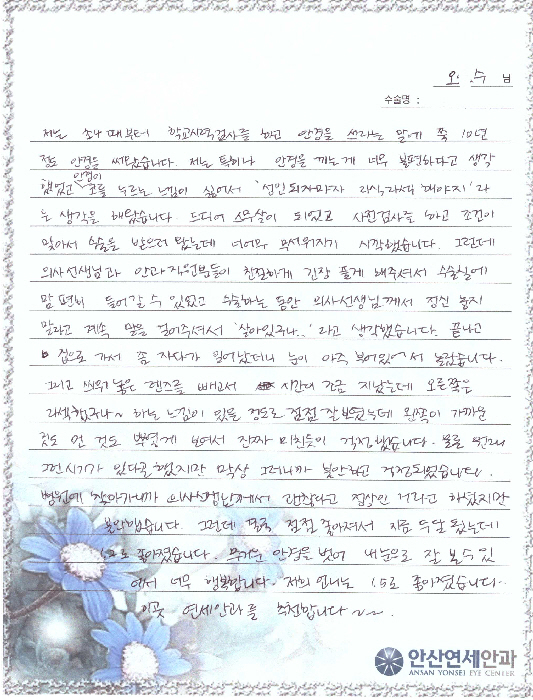 오 수 님
수술명 :
저는 초4때부터 학교시력검사를 하고 안경을 쓰라는 말에 쭉 10년
정도 안경을 써왔습니다. 저는 특히나 안경을 끼는게 너무 불편하다고 생각
했었고 안경이 코를 누르는 느낌이 싫어서 '성인되자마자 라식라섹 해야지'라
는 생각을 해왔습니다. 드디어 스무살이 되었고 사전검사를 하고 조건이
맞아서 수술을 받으러 왔는데 너어무 무서워지기 시작했습니다. 그런데
의사선생님과 안과직원분들이 친절하게 긴장 풀게 해주셔서 수술실에
맘 편히 들어갈 수 있었고 수술하는 동안 의사선생님께서 정신 놓지
말라고 계속 말을 걸어주셔서 '살아있구나..' 라고 생각했습니다. 끝나고
집으로 가서 좀 자다가 일어났더니 눈이 아주 부어있어서 놀랐습니다.
그리고 씌워 놓은 렌즈를 빼고서 시간이 조금 지났는데 오른쪽은
라섹했구나~ 하는 느낌이 있을 정도로 점점 잘보였는데 왼쪽이 가까운
것도 먼 것도 뿌옇게 보여서 진짜 미친듯이 걱정했습니다. 물론 원래
그런시기가 있다곤 했지만 막상 그러니까 불안하고 걱정되었습니다.
병원에 찾아가니까 의사선생님께서 괜찮다고 정상인 거라고 하셨지만
불안했습니다. 그런데 결국 점점 좋아져서 지금 두달 됐는데
1.5로 좋아졌습니다. 무거운 안경을 벗어 내눈으로 잘 볼 수 있
어서 너무 행복합니다. 저희 언니는 1.5로 좋아졌습니다..
이곳 연세안과를 추천합니다~~.
안산연세안과
ANSAN YONSEI EYE CENTER